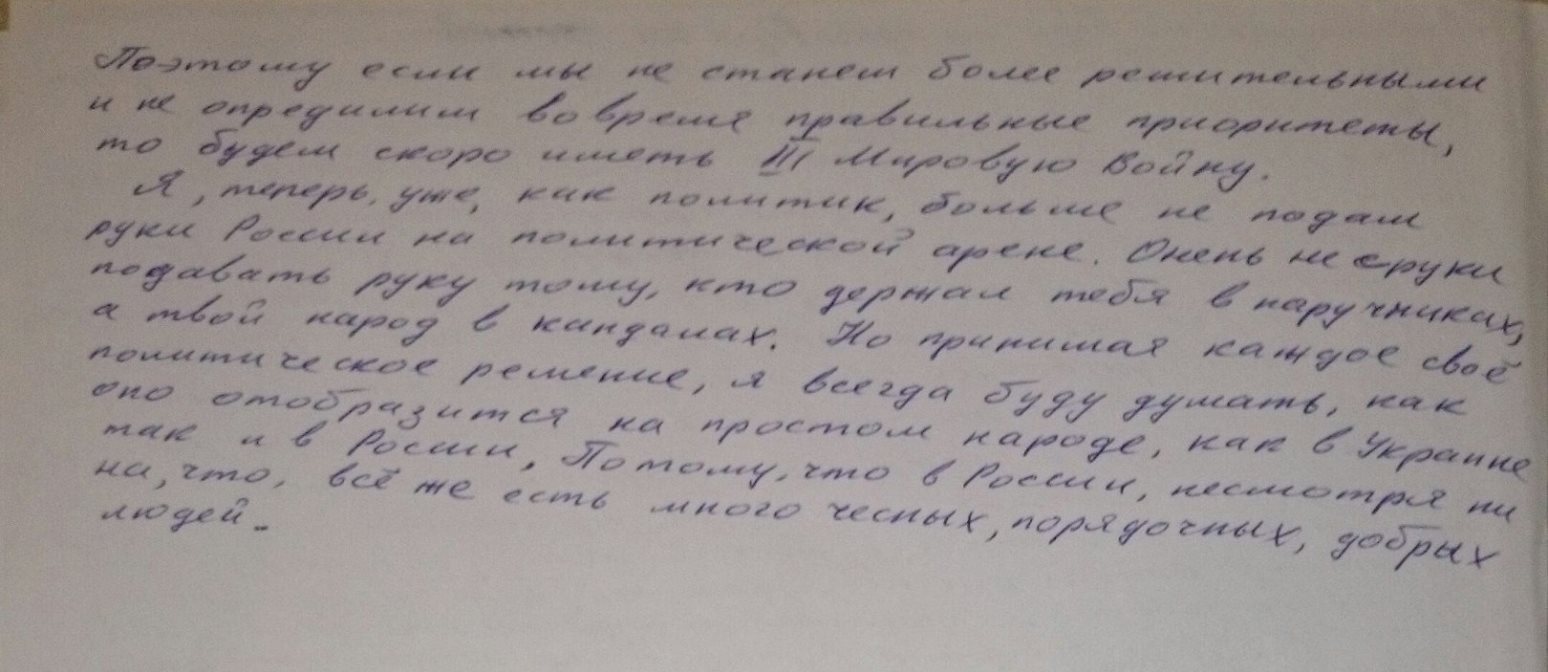 Поэтому если мы не станем более решительными
и не опредилим вовремя правильные приоритеты,
то будем скоро иметь III Мировую Войну.
Я, теперь, уже, как политик, больше не подам
руки России на политической арене. Очень не сруки
подавать руку тому, кто держал тебя в наручниках,
а твой народ в кандалах. Но принимая каждое своё
политическое решение, я всегда буду думать, как
оно отобразится на простом народе, как в Украине
так и в России. Потому, что в России, несмотря ни
на, что, всё же есть много чесных, порядочных, добрых
людей.